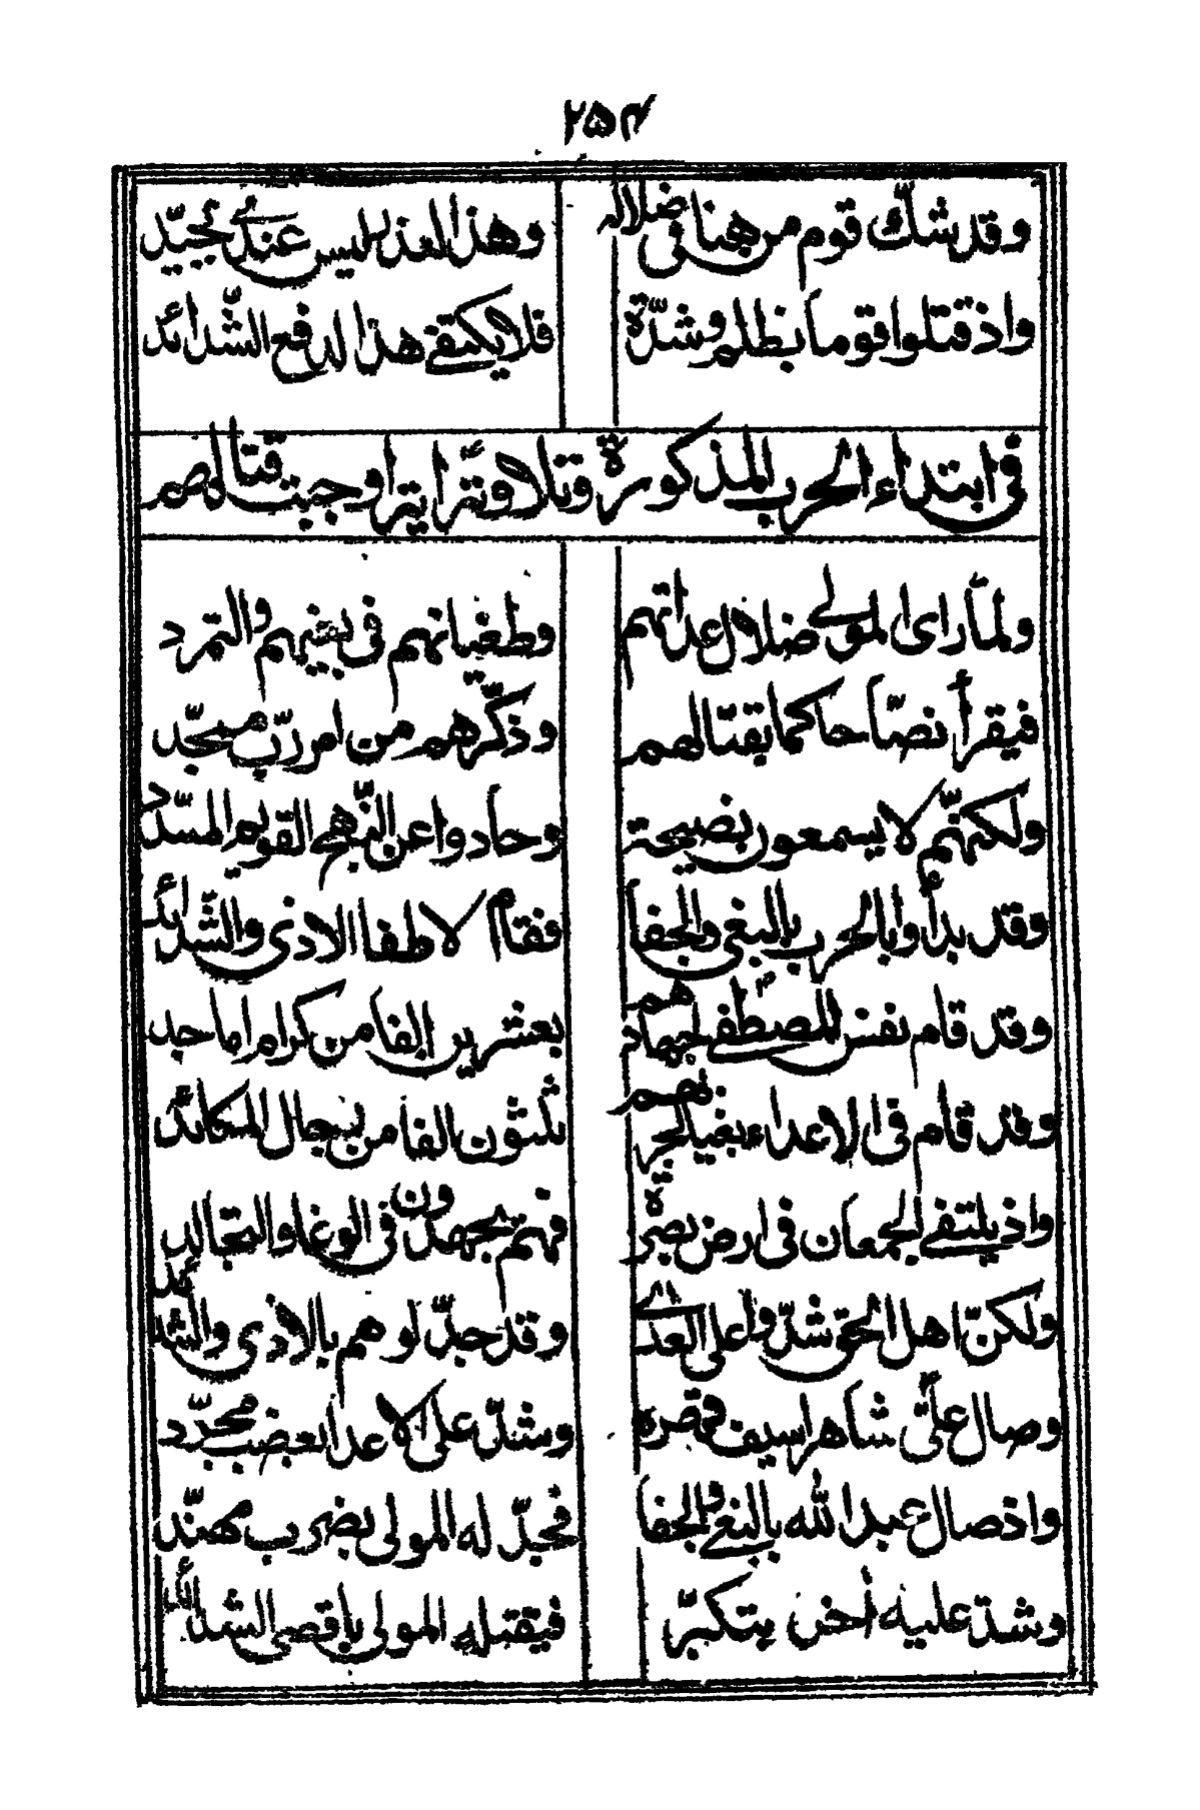 ۲۵۴
وقد شك قوم من هنا فی ضلاله وهذا لعذر لیس عندی بجیّد
واذ قتلوا قوما بظلم وشدّة فلا یکتفی هذا لدفع الشّدائد
فی ابتداء الحرب المذکورة وتلاوته وجبت قتالهم
ولمّا رای المولی ضلال عداتهم وطغیانهم فی بغیهم والتمرد
فیقرأ نصّا حاکما بقتالهم وذکّرهم من امر ربّ ممجّد
ولکنّهم لا یسمعون نصیحة وحادوا عن النّهج القویم المسدّد
وقد بدأوا بالحرب بالبغی والجفا فقام لاطفا الاذی والشّدائد
وقد قام نفس المصطفی لجهادهم بعشرین الفا من کرام اماجد
وقد قام فی الاعداء بغیا لحربهم ثلثون الفا من رجال المکائد
واذ یلتقی الجمعان فی ارض بصرة فهم یجهدون فی الوغا والتجالد
ولکنّ اهل الحق شدّوا علی العدی وقد جدّلوهم بالاذی والشدائد
وصال علیّ شاهرا سیف قصره وشدّ علی الاعدا بعضب مجرّد
واذ صال عبد الله بالبغی والجفا فجدّل له المولی بضرب مهنّد
وشد علیه أخر متکبرّ فیقتله المولی باقصی الشدائد